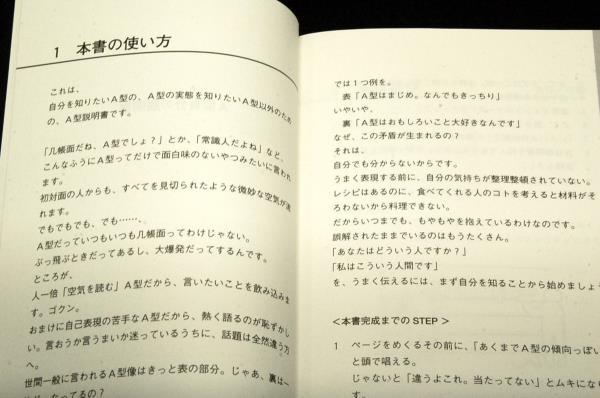 1 本書の使い方
これは、
自分を知りたいA型の、A型の実態を知りたいA型以外のため
の、A型説明書です。
「几帳面だね、A型でしょ?」とか、「常識人だよね」など、
こんなふうにA型ってだけで面白味のないやつみたいに言われ
ます。
初対面の人からも、すべてを見切られたような微妙な空気が流
れます。
でもでもでも、でも……、
A型だっていつもいつも几帳面ってわけじゃない。
ぶっ飛ぶときだってあるし、大爆発だってするんです。
ところが、
人一倍「空気を読む」A型だから、言いたいことを飲み込みま
す。ゴクン。
おまけに自己表現の苦手なA型だから、熱く語るのが恥ずかし
い。言おうか言うまいか迷っているうちに、話題は全然違う方
へ。
世間一般に言われるA型像はきっと表の部分。じゃあ、裏は一
なってるの?
では1つ例を。
表「A型はまじめ。なんでもきっちり」
いやいや、
裏「A型はおもしろいこと大好きなんです」
なぜ、この矛盾が生まれるの?
それは、
自分でも分からないからです。
うまく表現する前に、自分の気持ちが整理整頓されていない。
レシピはあるのに、食べてくれる人のコトを考えると材料がそ
ろわないから料理できない。
だからいつまでも、もやもやを抱えているわけなのです。
誤解されたままでいるのはもうたくさん。
「あなたはどういう人ですか?」
「私はこういう人間です」
を、うまく伝えるには、まず自分を知ることから始めましょ
<本書完成までの STEP >
1 ページをめくるその前に、「あくまでA型の傾向っぽい
と頭で唱える。
じゃないと「違うよこれ。当たってない」とムキになら
す。